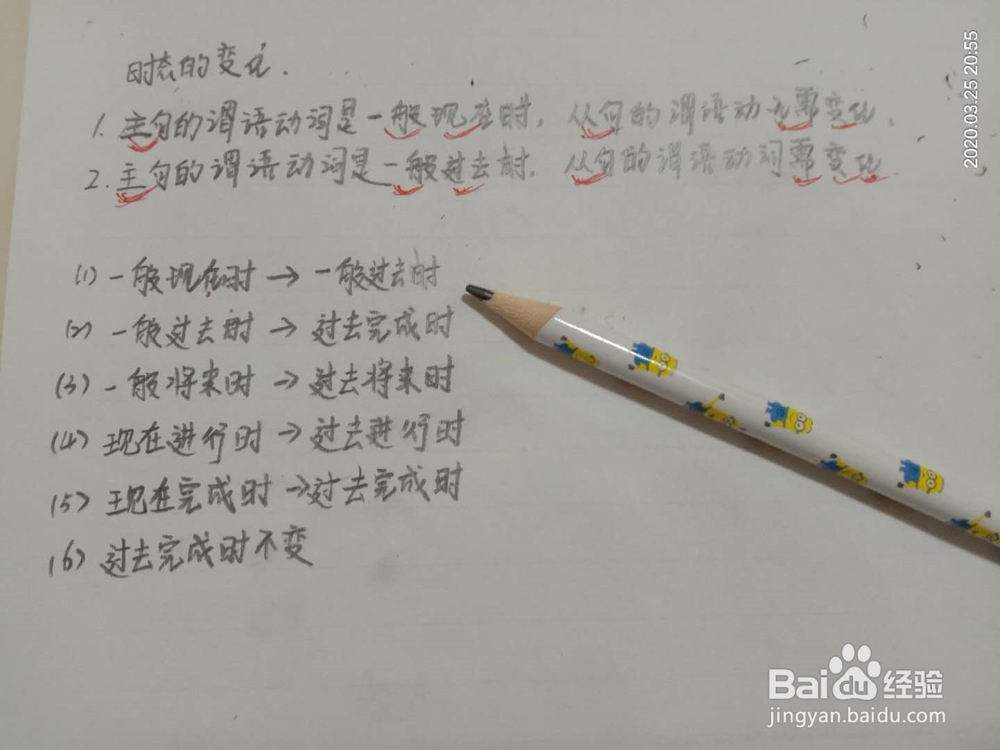 时态的变化.
1. 主句的谓语动词是一般现在时, 从句的谓语动无需变化.
2. 主句的谓语动词是一般过去时, 从句的谓语动词需变化.
(1) 一般现在时 → 一般过去时
(2) 一般过去时 → 过去完成时
(3) 一般将来时 → 过去将来时
(4) 现在进行时 → 过去进行时
(5) 现在完成时 → 过去完成时
(6) 过去完成时不变
2020.03.25 20:55
Baidu经验
jingyan.baidu.com